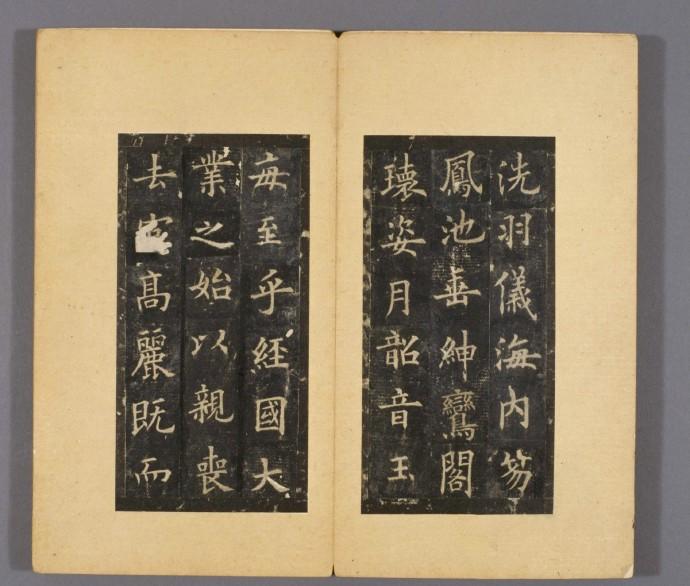 洗羽儀海内笏
鳳池垂紳鸞閣
瓌姿月韶音玉
毎至乎經國大
業之始以親喪
去 高麗既而